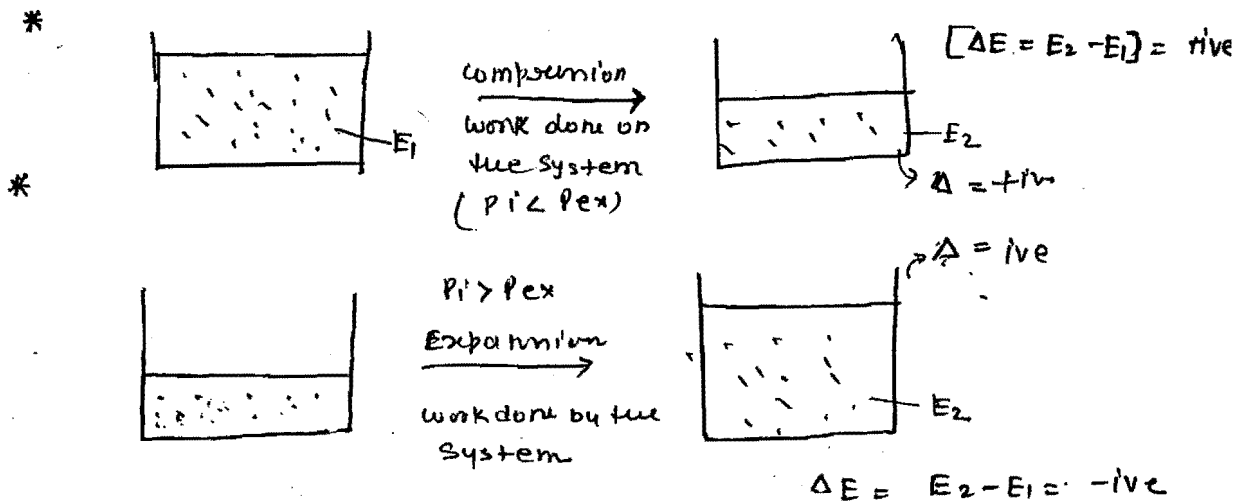 *
[ΔE = E2 - E1] = +ive
compression
work done on
the system
(Pi < Pex)
E1
E2
Δ = +iv
*
Δ = ive
Pi > Pex
Expansion
work done by the
system
E2
ΔE = E2 - E1 = -ive